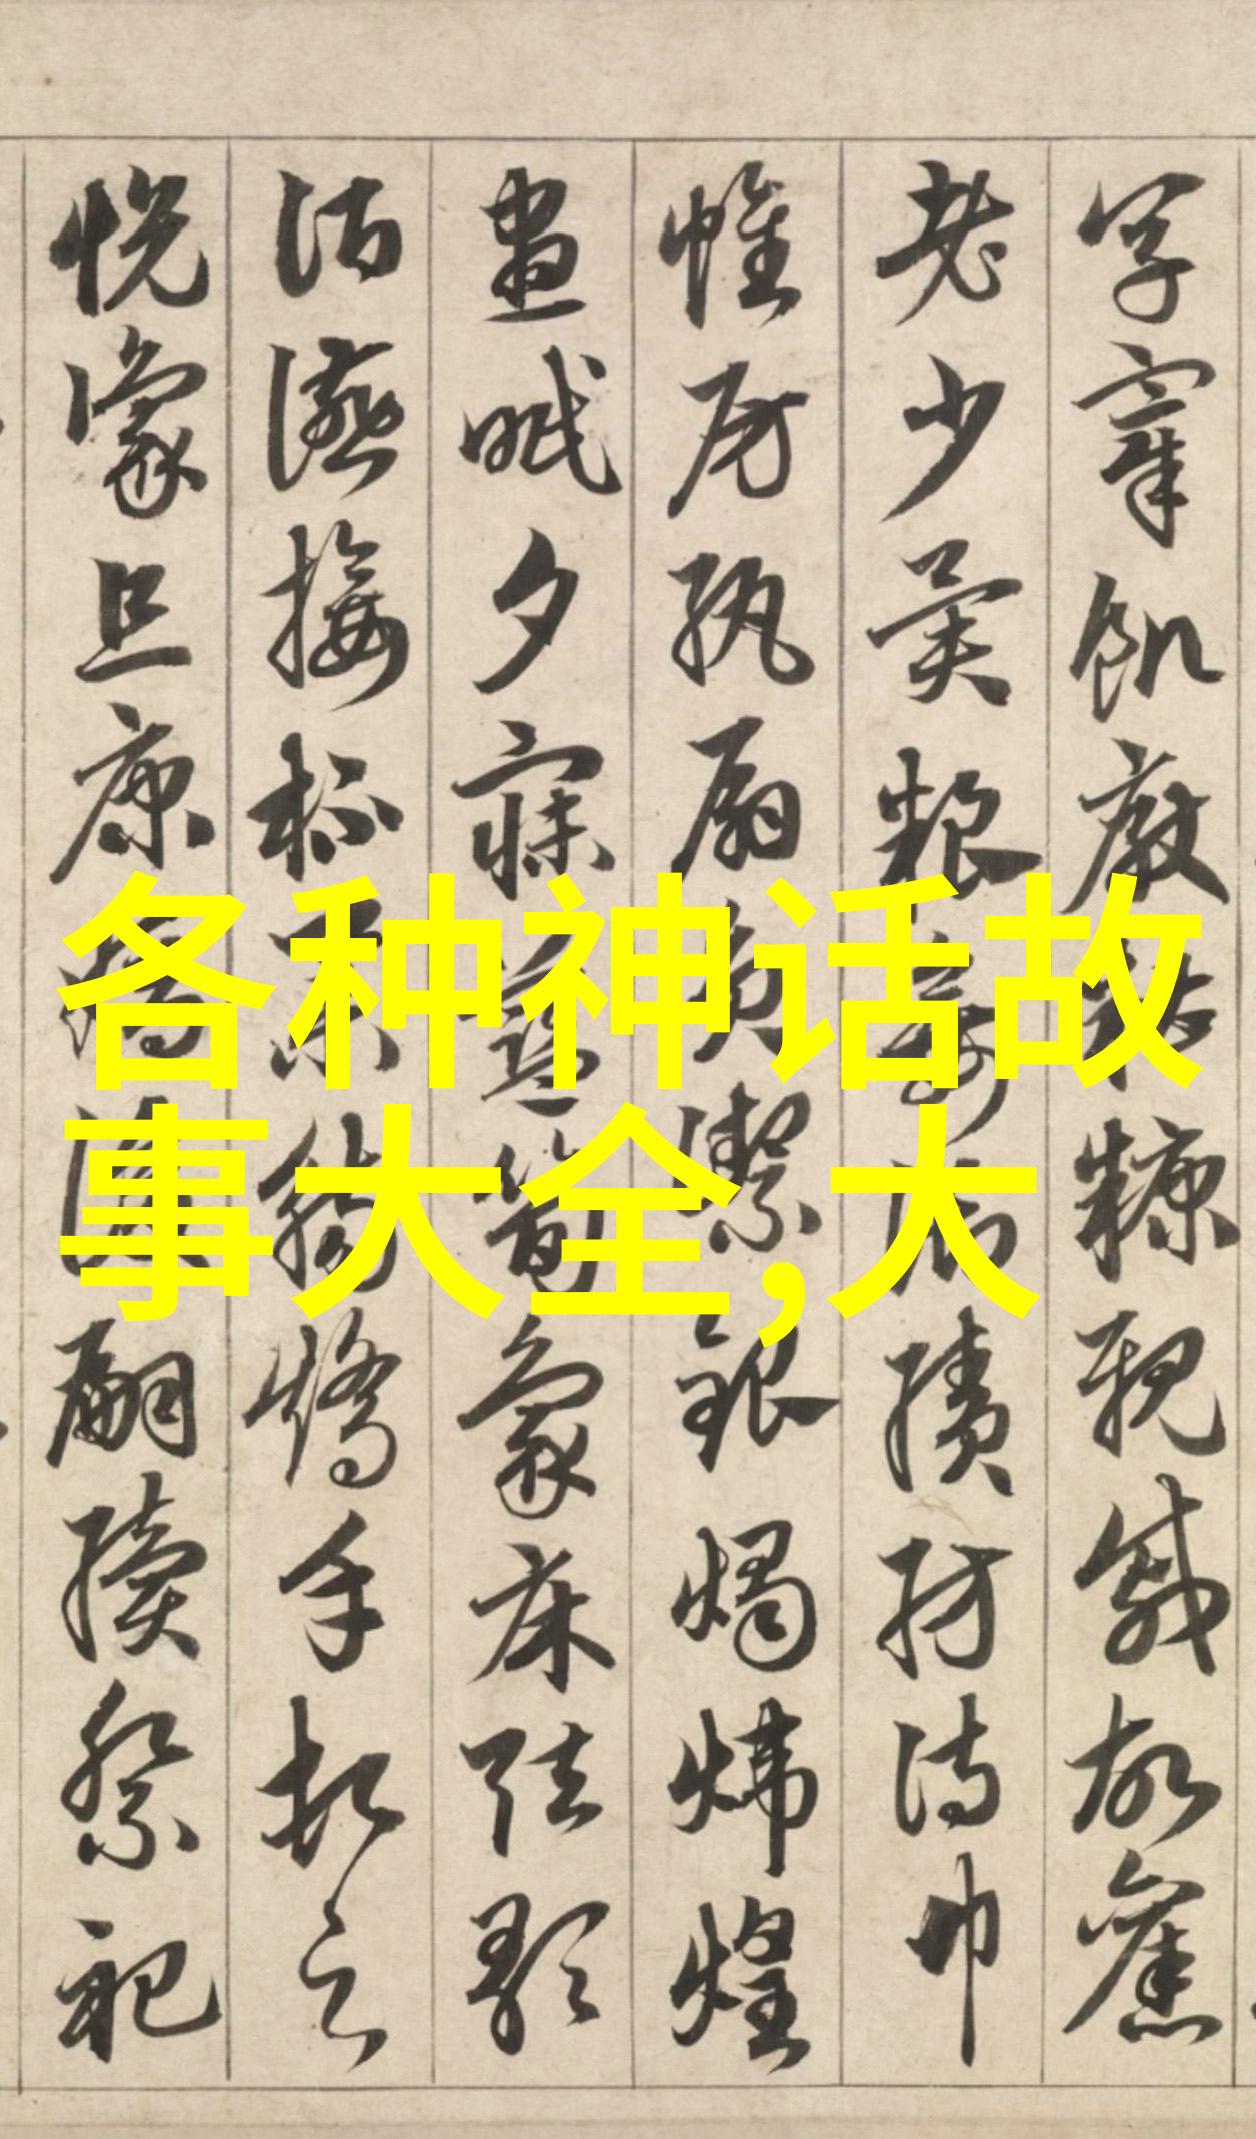 烹宰飢厭糟糠親戚故舊
老少異糧妾御績紡侍巾
帷房紈扇圓潔銀燭煒煌
晝眠夕寐藍筍象床弦歌
酒讌接杯舉觴矯手頓足
悅豫且康嫡後嗣續祭祀
各种神话故
事大全,大